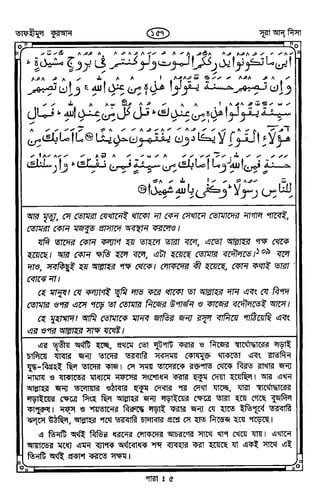 তাফহীমুল কুরআন
১৫৭
সূরা আন্ নিসা
أَيْنَ مَا تَكُونُوا يُدْرِكْكُّمُ الْمَوْتُ وَلَوْ كُنْتُمْ فِي بُرُوجٍ مُّشَيَّدَةٍ ۗ
وَإِنْ تُصِبْهُمْ حَسَنَةٌ يَّقُولُوا هٰذِهِ مِنْ عِنْدِ اللهِ ۚ وَإِنْ تُصِبْهُمْ
سَيِّئَةٌ يَّقُولُوا هٰذِهِ مِنْ عِنْدِكَ ۗ قُلْ كُلٌّ مِّنْ عِنْدِ اللهِ ۗ فَمَالِ
هٰؤُلَاءِ الْقَوْمِ لَا يَكَادُونَ يَفْقَهُونَ حَدِيثًا ۝ مَا أَصَابَكَ مِنْ
حَسَنَةٍ فَمِنَ اللهِ ۖ وَمَا أَصَابَكَ مِنْ سَيِّئَةٍ فَمِنْ نَّفْسِكَ ۗ وَأَرْسَلْنٰكَ
لِلنَّاسِ رَسُولًا ۗ وَكَفٰى بِاللهِ شَهِيدًا ۝
আর মৃত্যু, সে তোমরা যেখানেই থাকো না কেন সেখানে তোমাদের নাগাল পাবেই,
তোমরা কোন মজবুত প্রাসাদে অবস্থান করলেও।
যদি তাদের কোন কল্যাণ হয় তাহলে তারা বলে, এতো আল্লাহর পক্ষ থেকে
হয়েছে। আর কোন ক্ষতি হলে বলে, এটা হয়েছে তোমার বদৌলতে।১০৯ বলে
দাও, সবকিছুই হয় আল্লাহর পক্ষ থেকে। লোকদের কী হয়েছে, কোন কথাই তারা
বোঝে না।
হে মানুষ! যে কল্যাণই তুমি লাভ করে থাকো তা আল্লাহর দান এবং যে বিপদ
তোমার ওপর এসে পড়ে তা তোমার নিজের উপার্জন ও কাজের বদৌলতেই আসে।
হে মুহাম্মাদ! আমি তোমাকে মানব জাতির জন্য রসূল বানিয়ে পাঠিয়েছি এবং
এর ওপর আল্লাহর সাক্ষ যথেষ্ট।
এর তৃতীয় অর্থটি হচ্ছে, প্রথমে তো লুটপাট করার ও নিজের স্বার্থোদ্ধারের লড়াই
চালিয়ে যাবার জন্য তাদের তরবারি সবসময় কোষমুক্ত থাকতো এবং রাতদিন
যুদ্ধ-বিগ্রহই ছিল তাদের কাজ। সে সময় তাদেরকে রক্তপাত থেকে বিরত রাখার জন্য
নামায ও যাকাতের মাধ্যমে নফসের সংশোধন করার হুকুম দেয়া হয়েছিল। আর এখন
আল্লাহর জন্য তলোয়ার ওঠাবার হুকুম দেবার পর দেখা যাচ্ছে, যারা স্বার্থোদ্ধারের
লড়াইয়ের ক্ষেত্রে সিংহ ছিল আল্লাহর জন্য লড়াইয়ের ক্ষেত্রে তারা হয়ে গেছে বুজদিল
কাপুরুষ। নফস ও শয়তানের বিরুদ্ধে লড়াই করার জন্য যে হাতে ইতিপূর্বে তরবারি
ঝলসে উঠছিল, আল্লাহর পথে তরবারি চালাবার প্রশ্নে সে হাত নিস্তেজ হয়ে পড়েছে।
এ তিনটি অর্থই বিভিন্ন ধরনের লোকদের আচরণের সাথে খাপ খেয়ে যায়। এখানে
আয়াতের মধ্যে এমন ব্যাপক অর্থবোধক শব্দ ব্যবহার করা হয়েছে যা একই সাথে এই
তিনটি অর্থই প্রকাশ করতে সক্ষম।
পারা ঃ ৫